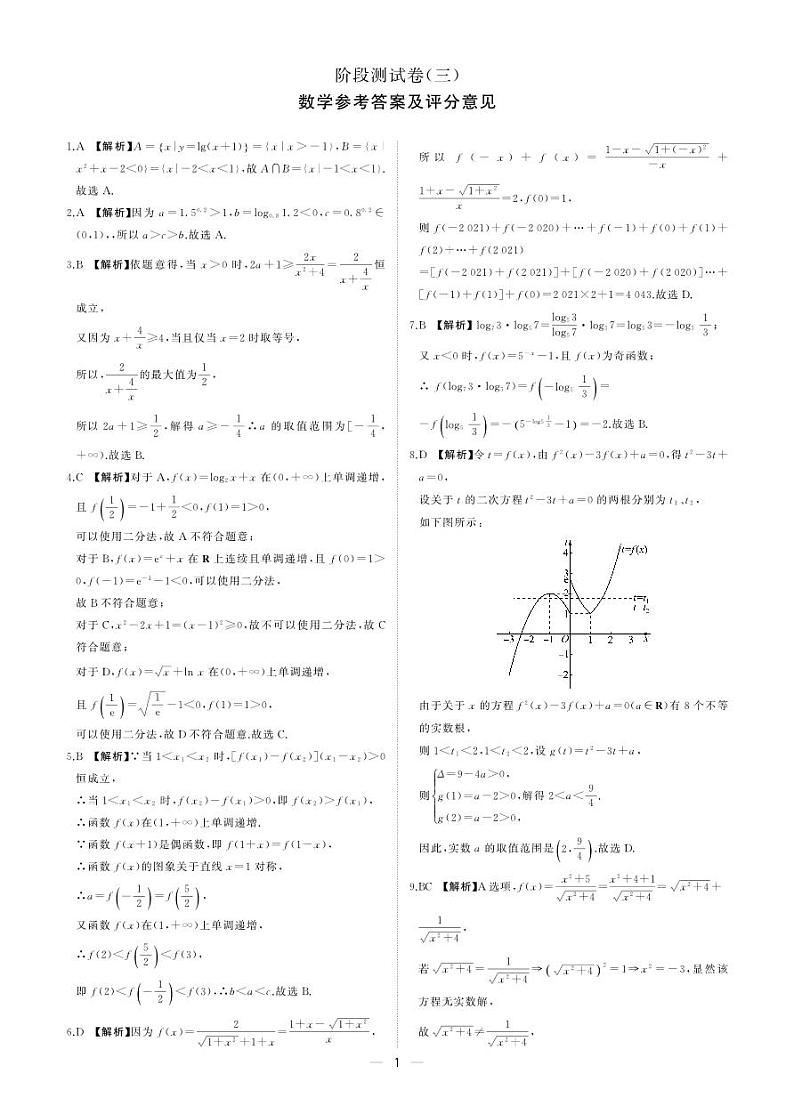 阶段测试卷(三)
数学参考答案及评分意见
1.A 【解析】A={x|y=lg(x+1)}={x|x>-1},B={x|
x²+x-2<0}={x|-2<x<1},故A∩B={x|-1<x<1}.
故选 A.
2.A 【解析】因为 a=1.5^{0.2}>1,b=log_{0.8}1.2<0,c=0.8^{0.2}∈
(0,1),,所以a>c>b.故选 A.
3.B 【解析】依题意得,当 x>0 时,2a+1≥\frac{2x}{x²+4}=\frac{2}{x+\frac{4}{x}}恒
成立,
又因为 x+\frac{4}{x}≥4,当且仅当 x=2 时取等号,
所以,\frac{2}{x+\frac{4}{x}}的最大值为\frac{1}{2},
所以 2a+1≥\frac{1}{2},解得 a≥-\frac{1}{4}∴a 的取值范围为[-\frac{1}{4},
+∞).故选 B.
4.C 【解析】对于 A,f(x)=log₂x+x 在(0,+∞)上单调递增,
且 f(\frac{1}{2})=-1+\frac{1}{2}<0,f(1)=1>0,
可以使用二分法,故 A 不符合题意;
对于 B,f(x)=e^x+x 在 R 上连续且单调递增,且 f(0)=1>
0,f(-1)=e^{-1}-1<0,可以使用二分法,
故 B 不符合题意;
对于 C,x²-2x+1=(x-1)²≥0,故不可以使用二分法,故 C
符合题意;
对于 D,f(x)=√x+ln x 在(0,+∞)上单调递增,
且 f(\frac{1}{e})=\sqrt{\frac{1}{e}}-1<0,f(1)=1>0,
可以使用二分法,故 D 不符合题意.故选 C.
5.B 【解析】∵当 1<x₁<x₂ 时,[f(x₁)-f(x₂)](x₁-x₂)>0
恒成立,
∴当 1<x₁<x₂ 时,f(x₂)-f(x₁)>0,即 f(x₂)>f(x₁),
∴函数 f(x)在(1,+∞)上单调递增.
∵函数 f(x+1)是偶函数,即 f(1+x)=f(1-x),
∴函数 f(x)的图象关于直线 x=1 对称,
∴a=f(-\frac{1}{2})=f(\frac{5}{2}),
又函数 f(x)在(1,+∞)上单调递增,
∴f(2)<f(\frac{5}{2})<f(3),
即 f(2)<f(-\frac{1}{2})<f(3),∴b<a<c.故选 B.
6.D 【解析】因为 f(x)=\frac{2}{\sqrt{1+x²}+1+x}=\frac{1+x-\sqrt{1+x²}}{x},
所以 f(-x)+f(x)=\frac{1-x-\sqrt{1+(-x)²}}{-x}+
\frac{1+x-\sqrt{1+x²}}{x}=2,f(0)=1,
则 f(-2 021)+f(-2 020)+…+f(-1)+f(0)+f(1)+
f(2)+…+f(2 021)
=[f(-2 021)+f(2 021)]+[f(-2 020)+f(2 020)]…+
[f(-1)+f(1)]+f(0)=2 021×2+1=4 043.故选 D.
7.B 【解析】log₇3·log₅7=\frac{log₅3}{log₅7}·log₅7=log₅3=-log₅\frac{1}{3};
又 x<0 时,f(x)=5^{-x}-1,且 f(x)为奇函数;
∴ f(log₇3·log₅7)=f(-log₅\frac{1}{3})=
-f(log₅\frac{1}{3})=-(5^{-log5\frac{1}{3}}-1)=-2.故选 B.
8.D 【解析】令 t=f(x),由 f²(x)-3f(x)+a=0,得 t²-3t+
a=0,
设关于 t 的二次方程 t²-3t+a=0 的两根分别为 t₁、t₂,
如下图所示:
t
4
t=f(x)
3
3
2
t=t₁
1
t=t₂
-3 -2 -1 O 1 2 3 4 x
-1
-2
由于关于 x 的方程 f²(x)-3f(x)+a=0(a∈R)有 8 个不等
的实数根,
则 1<t₁<2,1<t₂<2,设 g(t)=t²-3t+a,
Δ=9-4a>0,
则{g(1)=a-2>0,解得 2<a<\frac{9}{4}.
g(2)=a-2>0,
因此,实数 a 的取值范围是(2,\frac{9}{4}).故选 D.
9.BC 【解析】A 选项,f(x)=\frac{x²+5}{\sqrt{x²+4}}=\frac{x²+4+1}{\sqrt{x²+4}}=\sqrt{x²+4}+
\frac{1}{\sqrt{x²+4}},
若 \sqrt{x²+4}=\frac{1}{\sqrt{x²+4}}⇒(\sqrt{x²+4})²=1⇒x²=-3,显然该
方程无实数解,
故 \sqrt{x²+4}≠\frac{1}{\sqrt{x²+4}},
— 1 —